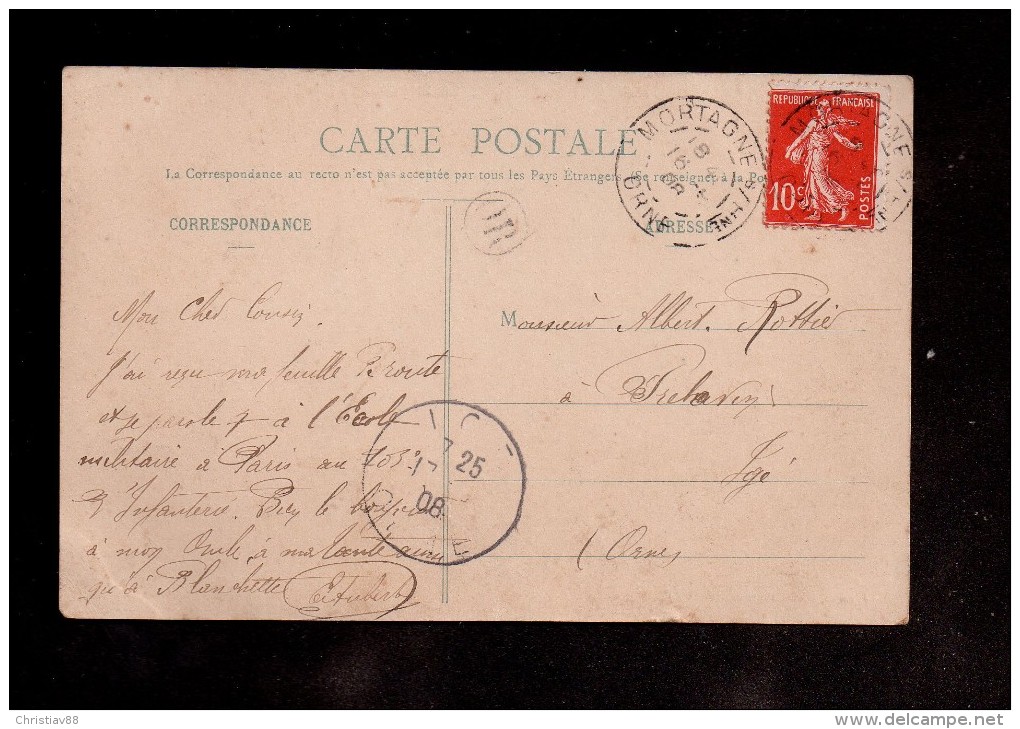 CARTE POSTALE
La Correspondance au recto n'est pas acceptée par tous les Pays Étrangers (Se renseigner à la Pos
CORRESPONDANCE
ADRESSE
MORTAGNE S/HNE
18
16
08
ORNE
REPUBLIQUE FRANÇAISE
10c
POSTES
Mon cher Cousin.
J'ai reçu ma feuille D route
et je parole à l'École
militaire à Paris au 103e
D'Infanterie. Bien le bonjour
à mon Oncle, à ma tante ainsi
qu'à Blanchette
Monsieur Albert. Rottier
à
Igé
(Orne)
7 25
08
Christiav88
www.delcampe.net